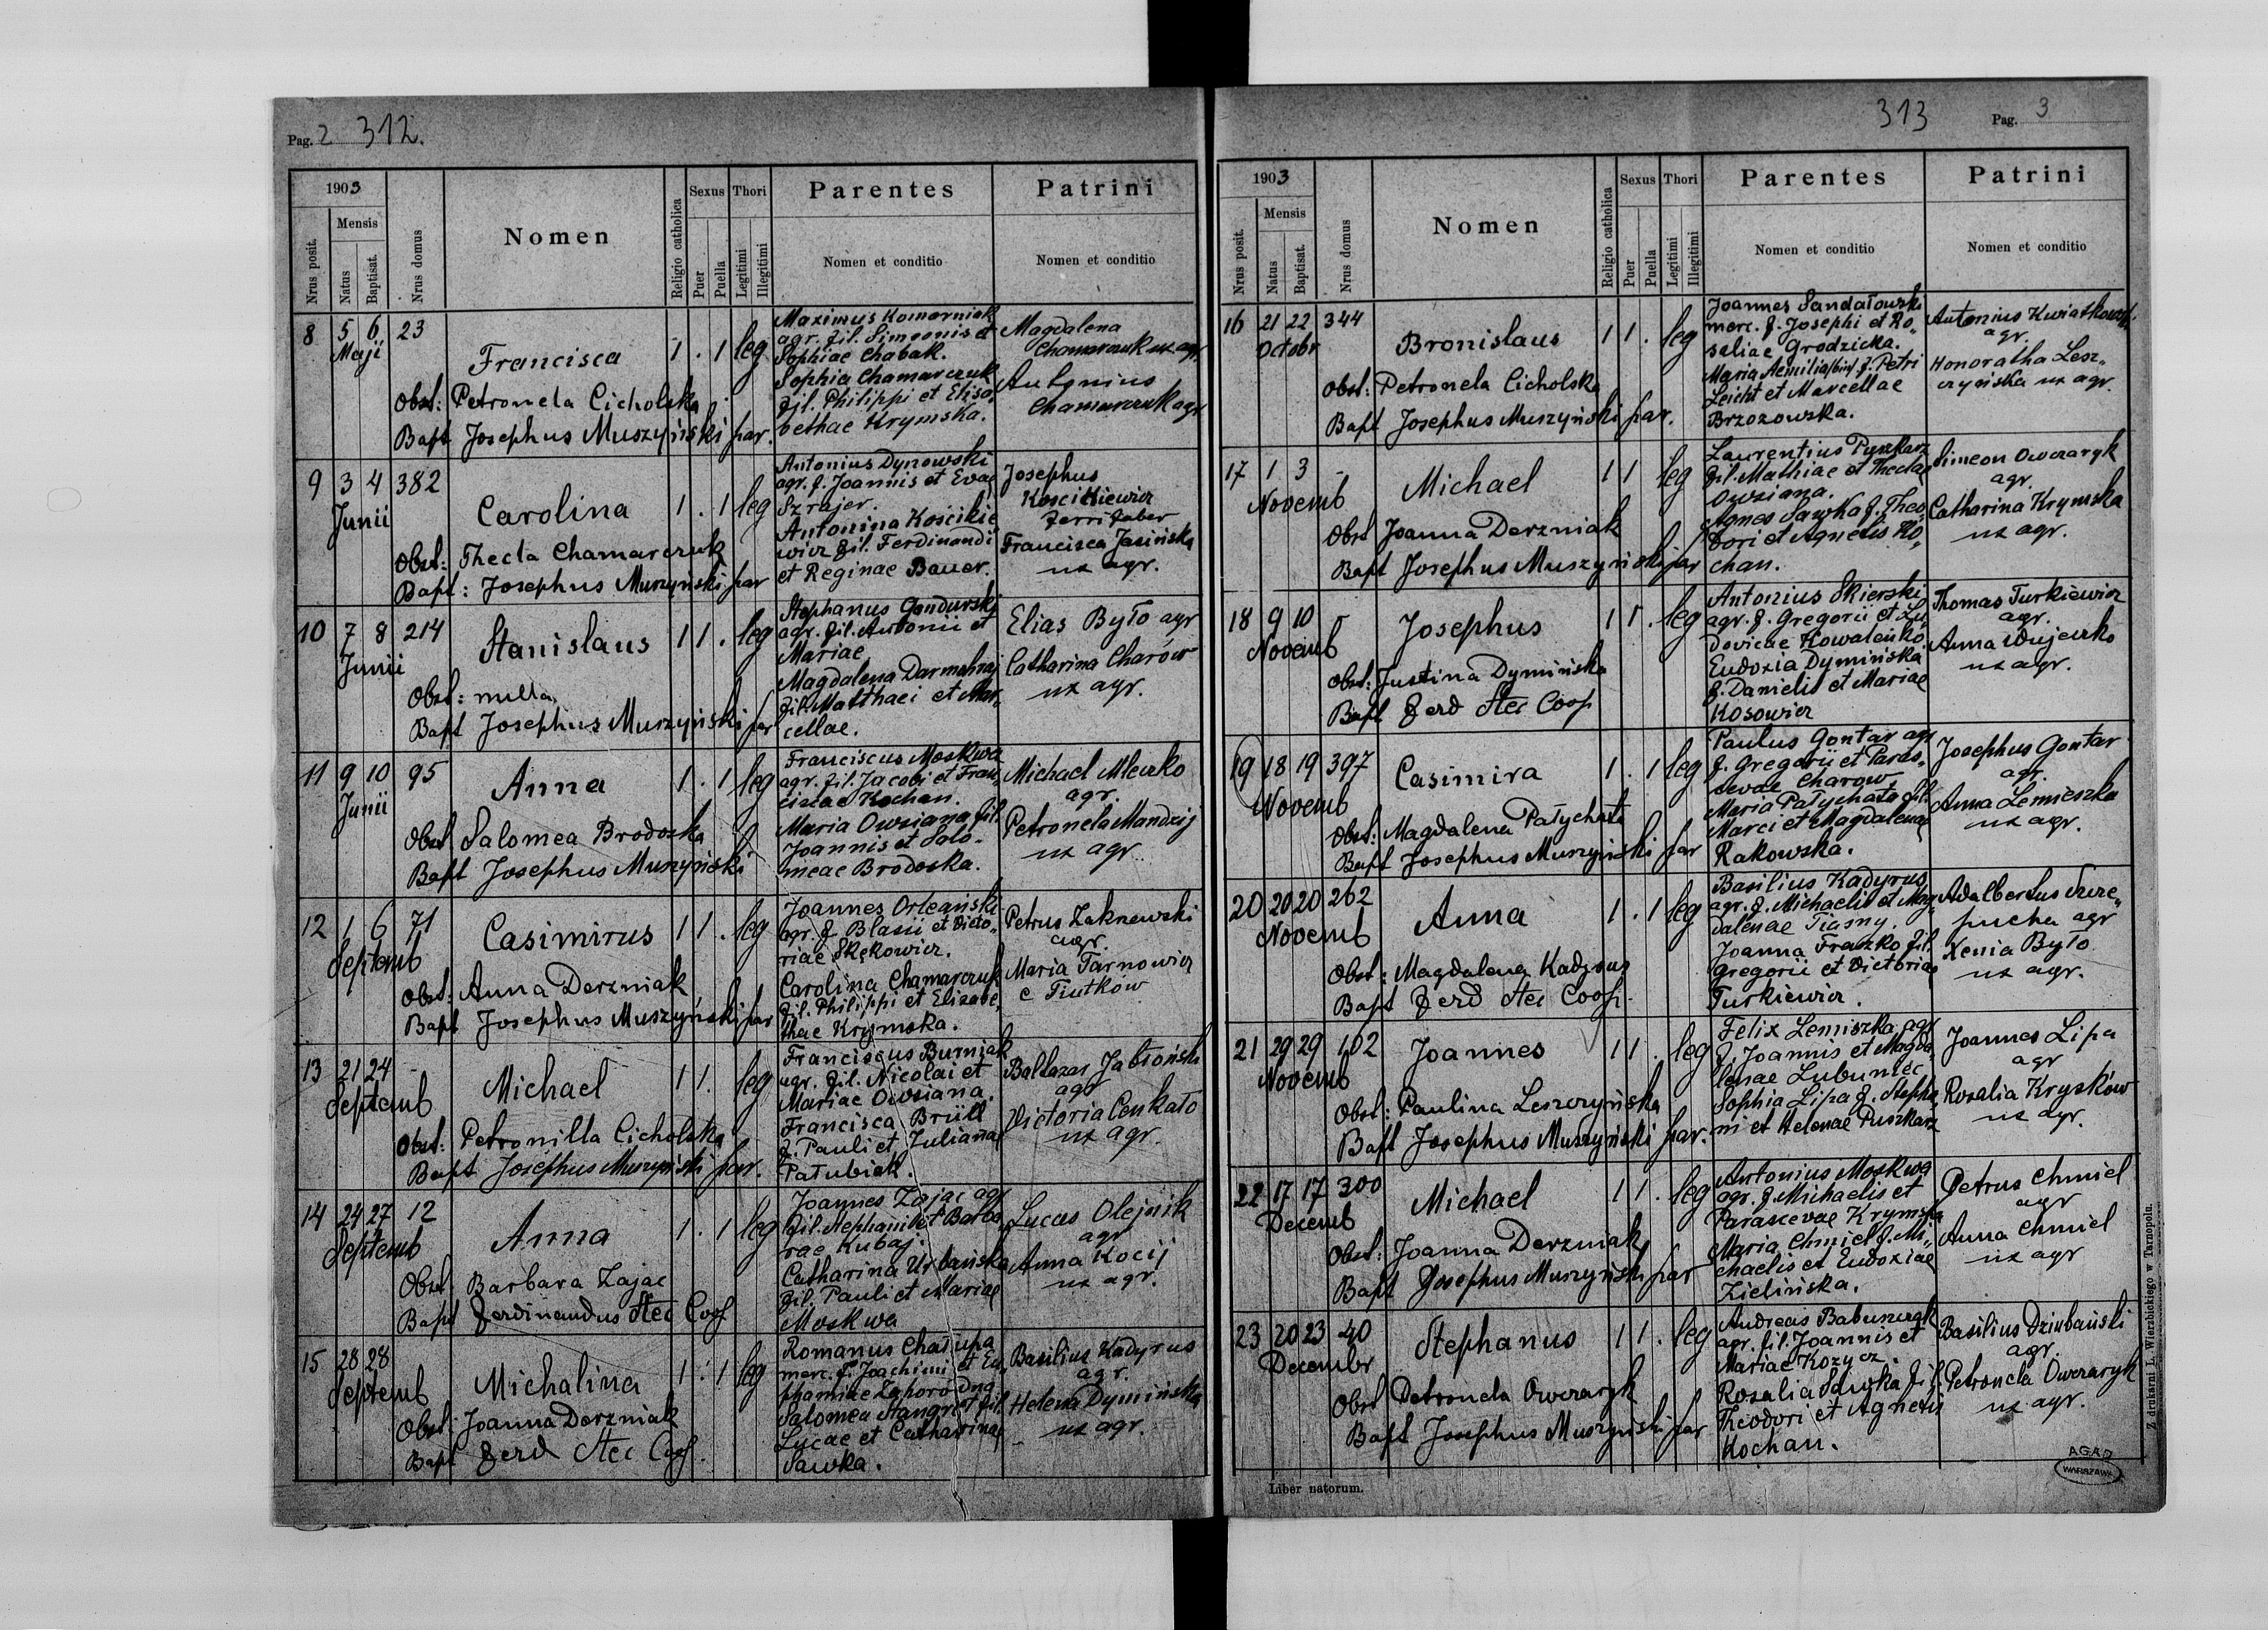 Pag. 2 312.
1903
Nrus posit.
Mensis
Natus
Baptisat.
Nrus domus
Nomen
Religio catholica
Sexus
Puer
Puella
Thori
Legitimi
Illegitimi
Parentes
Nomen et conditio
Patrini
Nomen et conditio
8 5 6 23
Maji
Francisca
1 . 1 leg
Obst: Petronela Cicholska
Bapt Josephus Muszyński par.
Maximus Komarniak
agr. fil. Simeonis et
Sophiae Chabak.
Sophia Chamarczuk
fil. Philippi et Elisa„
bethae Krymska.
Magdalena
Chamarczuk ux agr.
Antonius
Chamarczuk agr
9 3 4 382
Junii
Carolina
1 . 1 leg
Obst: Thecla Chamarczuk
Bapt: Josephus Muszyński par
Antonius Dynowski
agr. f. Joannis et Evae
Szrajer.
Antonina Kościkie
wicz fil. Ferdinandi
et Reginae Bauer.
Josephus
Kościkiewicz
ferri faber
Francisca Jasińska
ux agr.
10 7 8 214
Junii
Stanislaus
1 1 . leg
Obst: nulla
Bapt Josephus Muszyński par
Stephanus Gondurski
agr. fil. Antonii et
Mariae
Magdalena Darmohraj
fil. Matthaei et Mar„
cellae.
Elias Było agr
Catharina Charów
ux agr.
11 9 10 95
Junii
Anna
1 . 1 leg
Obst Salomea Brodoska
Bapt Josephus Muszyński
Franciscus Moskwa
agr. fil. Jacobi et Fran„
ciscae Kochan.
Maria Owsiana fil.
Joannis et Salo„
meae Brodoska.
Michael Mleczko
agr.
Petronela Mandzij
ux agr.
12 1 6 71
Septemb
Casimirus
1 1 . leg
Obst: Anna Derzniak
Bapt Josephus Muszyński par
Joannes Orleański
agr. f. Blasii et Victo„
riae Skękowicz.
Carolina Chamarczuk
fil. Philippi et Elizabe„
thae Krymska.
Petrus Zaknewski
agr.
Maria Tarnowicz
e Tiutków
13 21 24 -
Septemb
Michael
1 1. leg
Obst: Petronilla Cicholska
Bapt Josephus Muszyński par.
Franciscus Burniak
agr. fil. Nicolai et
Mariae Owsiana.
Francisca Brüll
f. Pauli et Julianae
Patubiak.
Baltazar Jabłoński
agr
Victoria Cenkało
ux agr.
14 24 27 12
Septemb
Anna
1 . 1 leg
Obst Barbara Zajac
Bapt Ferdinandus Stec Coop
Joannes Zajac agr
fil. Stephani et Barba
rae Kubaj.
Catharina Urbańska
fil. Pauli et Mariae
Moskwa
Lucas Olejnik
agr
Anna Kocij
ux agr.
15 28 28
Septemb
Michalina
1 . 1 leg
Obst: Joanna Derzniak
Bapt Ferd Stec Coop.
Romanus Chałupa
merc. f. Joachimi et Eu
phamiae Zahorodna
Salomea Stangret fil.
Lucae et Catharinae
Sawka.
Basilius Kadyrus
agr.
Helena Dymińska
ux agr.
313 Pag. 3
1903
Nrus posit.
Mensis
Natus
Baptisat.
Nrus domus
Nomen
Religio catholica
Sexus
Puer
Puella
Thori
Legitimi
Illegitimi
Parentes
Nomen et conditio
Patrini
Nomen et conditio
16 21 22 344
Octobr
Bronislaus
1 1 . leg
Obst: Petronela Cicholska
Bapt Josephus Muszyński par.
Joannes Sandałowski
merc. f. Josephi et Ro„
saliae Grodzicka.
Maria Aemilia (bin) f. Petri
Leicht et Marcellae
Brzozowska.
Antonius Kwiatkowski
agr.
Honoratha Lesz„
czyńska ux agr.
17 1 3 -
Novemb
Michael
1 1 leg
Obst Joanna Derzniak
Bapt Josephus Muszyński par
Laurentius Puszkarz
fil. Mathiae et Theclae
Owsiana.
Agnes Sawka f. Theo„
dori et Agnetis Ko„
chan.
Simeon Owczaryk
agr.
Catharina Krymska
ux agr.
18 9 10 -
Novemb
Josephus
1 1 . leg
Obst: Justina Dymińska
Bapt Ferd Stec Coop
Antonius Skierski
agr. f. Gregorii et Lu„
dovicae Kowaleńko.
Eudoxia Dymińska
f. Danielis et Mariae
Kosowicz
Thomas Turkiewicz
agr.
Anna Wujeczko
ux agr.
19 18 19 397
Novemb
Casimira
1 . 1 leg
Obst: Magdalena Patychata
Bapt Josephus Muszyński par
Paulus Gontar agr
f. Gregorii et Paras„
cevae Charow
Maria Patychata fil.
Marci et Magdalenae
Rakowska.
Josephus Gontar
agr.
Anna Lemieszka
ux agr.
20 20 20 262
Novemb
Anna
1 . 1 leg
Obst: Magdalena Kadyrus
Bapt Ferd Stec Coop.
Basilius Kadyrus
agr. f. Michaelis et Mag„
dalenae Tiasny.
Joanna Fraszko fil.
Gregorii et Victoriae
Turkiewicz.
Adalbertus Szcze„
pucha agr
Xenia Było
ux agr.
21 29 29 102
Novemb
Joannes
1 1 . leg
Obst: Paulina Leszczyńska
Bapt Josephus Muszyński par.
Felix Lemiszka agr
f. Joannis et Magda„
lenae Lubuniec
Sophia Lipa f. Stepha
ni et Helenae Puszkarz
Joannes Lipa
agr
Rosalia Krysków
ux agr.
22 17 17 300
Decemb
Michael
1 1 . leg
Obst: Joanna Derzniak
Bapt Josephus Muszyński par
Antonius Moskwa
agr. f. Michaelis et
Parascevae Krymska
Maria Chmiel f. Mi„
chaelis et Eudoxiae
Zielińska.
Petrus Chmiel
agr
Anna Chmiel
ux agr
23 20 23 40
Decembr
Stephanus
1 1 . leg
Obst Petronela Owczaryk
Bapt Josephus Muszyński par
Andreas Babuszczak
agr. fil. Joannis et
Mariae Kozycz.
Rosalia Sawka fil.
Theodori et Agnetis
Kochan.
Basilius Dziubański
agr.
Petronela Owczaryk
ux agr.
Liber natorum.
Z drukarni L. Wierzbickiego w Tarnopolu.
AGAD
WARSZAWA